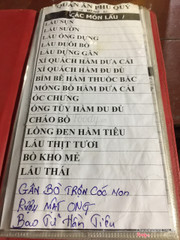 QUÁN ĂN PHÚ QUÝ
CÁC MÓN LẨU
LẨU SỤN
LẨU SƯỜN
LẨU ỐNG DỰNG
LẨU ĐUÔI BÒ
LẨU DỰNG GÂN
XÍ QUÁCH HẦM DƯA CẢI
XÍ QUÁCH HẦM ĐU ĐỦ
BÌM BỊP HẦM THUỐC BẮC
MÓNG BÒ HẦM DƯA CẢI
ỐC CHƯNG
ỐNG TỦY HẦM ĐU ĐỦ
CHÁO BÒ
LÒNG ĐEN HẦM TIÊU
LẨU THỊT TƯƠI
BÒ KHO MẺ
LẨU THÁI
GÂN BÒ TRỘN CÓC NON
RƯỢU MẬT ONG
Bao Tử Hầm Tiêu